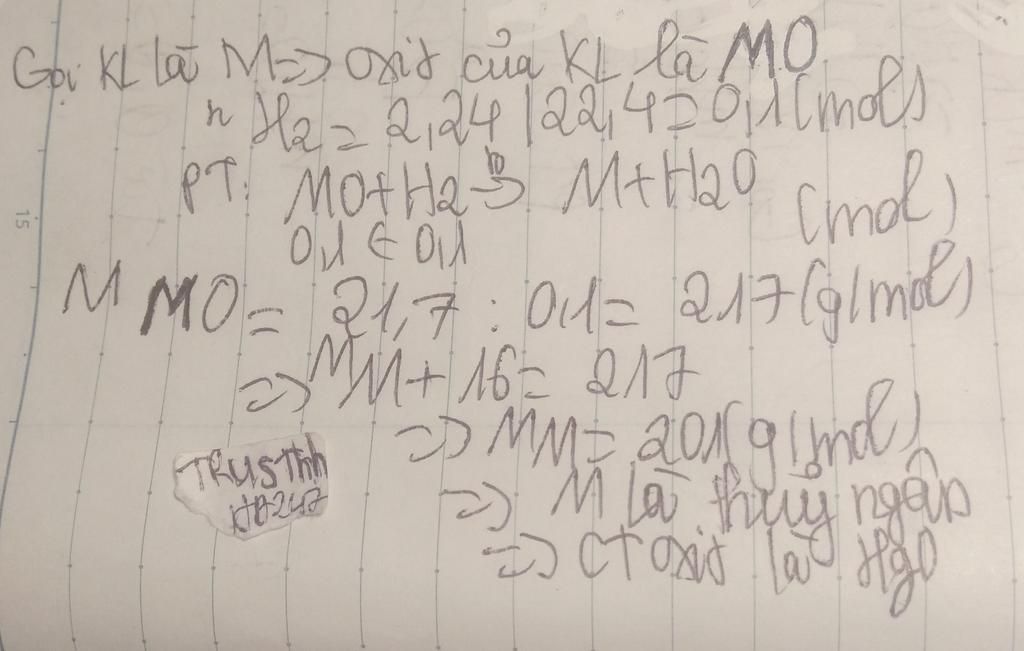 Gọi KL là M => oxit của KL là MO
n H2 = 2,24 / 22,4 = 0,1 (mol)
PT: MO + H2 to-> M + H2O
0,1 ← 0,1 (mol)
M MO = 21,7 : 0,1 = 217 (g/mol)
=> MM + 16 = 217
=> MM = 201 (g/mol)
=> M là thủy ngân
=> CT oxit là HgO
15
TRUSThh